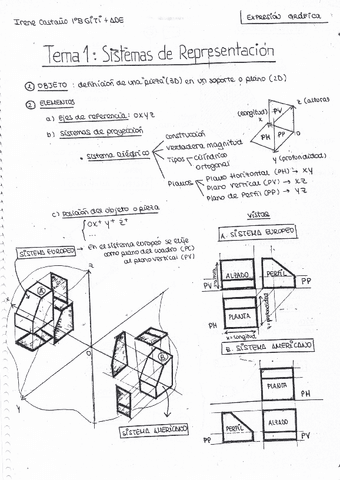 Irene Castaño 1ºB GITI + ADE
Expresión Gráfica
Tema 1: Sistemas de Representación
① OBJETO: definición de una "pieza" (3D) en un soporte o plano (2D)
② ELEMENTOS
a) Ejes de referencia: OXYZ
b) Sistemas de proyección
• Sistema Diédrico
construcción
verdadera magnitud
Tipos
Cilíndrico
Ortogonal
Planos
Plano Horizontal (PH) → XY
Plano Vertical (PV) → XZ
Plano de Perfil (PP) → YZ
(longitud)
x
z (alturas)
PV
PH
PP
y (profundidad)
c) Posición del objeto o pieza
OX⁺ Y⁺ Z⁺
...
SISTEMA EUROPEO
→ En el sistema europeo se elije
como plano del cuadro (PC)
al plano vertical (PV)
X
Z
O
Y
A
B
SISTEMA AMERICANO
VISTAS
A. SISTEMA EUROPEO
ALZADO
PERFIL
PP
PLANTA
PH
x=longitud
y=profundidad
B. SISTEMA AMERICANO
PLANTA
PH
PERFIL
ALZADO
PP
PV